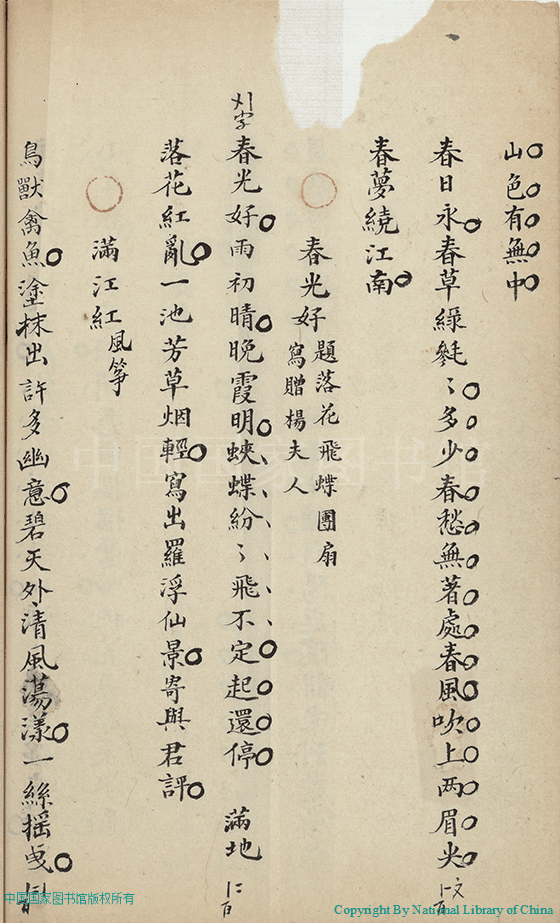 山色有無中
春日永春草綠毿〻多少春愁無著處春風吹上两眉尖
春夢繞江南
春光好 題落花飛蝶團扇
寫贈楊夫人
春光好雨初晴晚霞明蛺蝶紛〻飛不定起還停 滿地
落花紅亂一池芳草烟輕寫出羅浮仙景寄與君評
滿江紅 風箏
鳥獸禽魚塗抹出許多幽意碧天外清風蕩漾一絲搖曵
中国国家图书馆
中国国家图书馆版权所有
Copyright By National Library of China